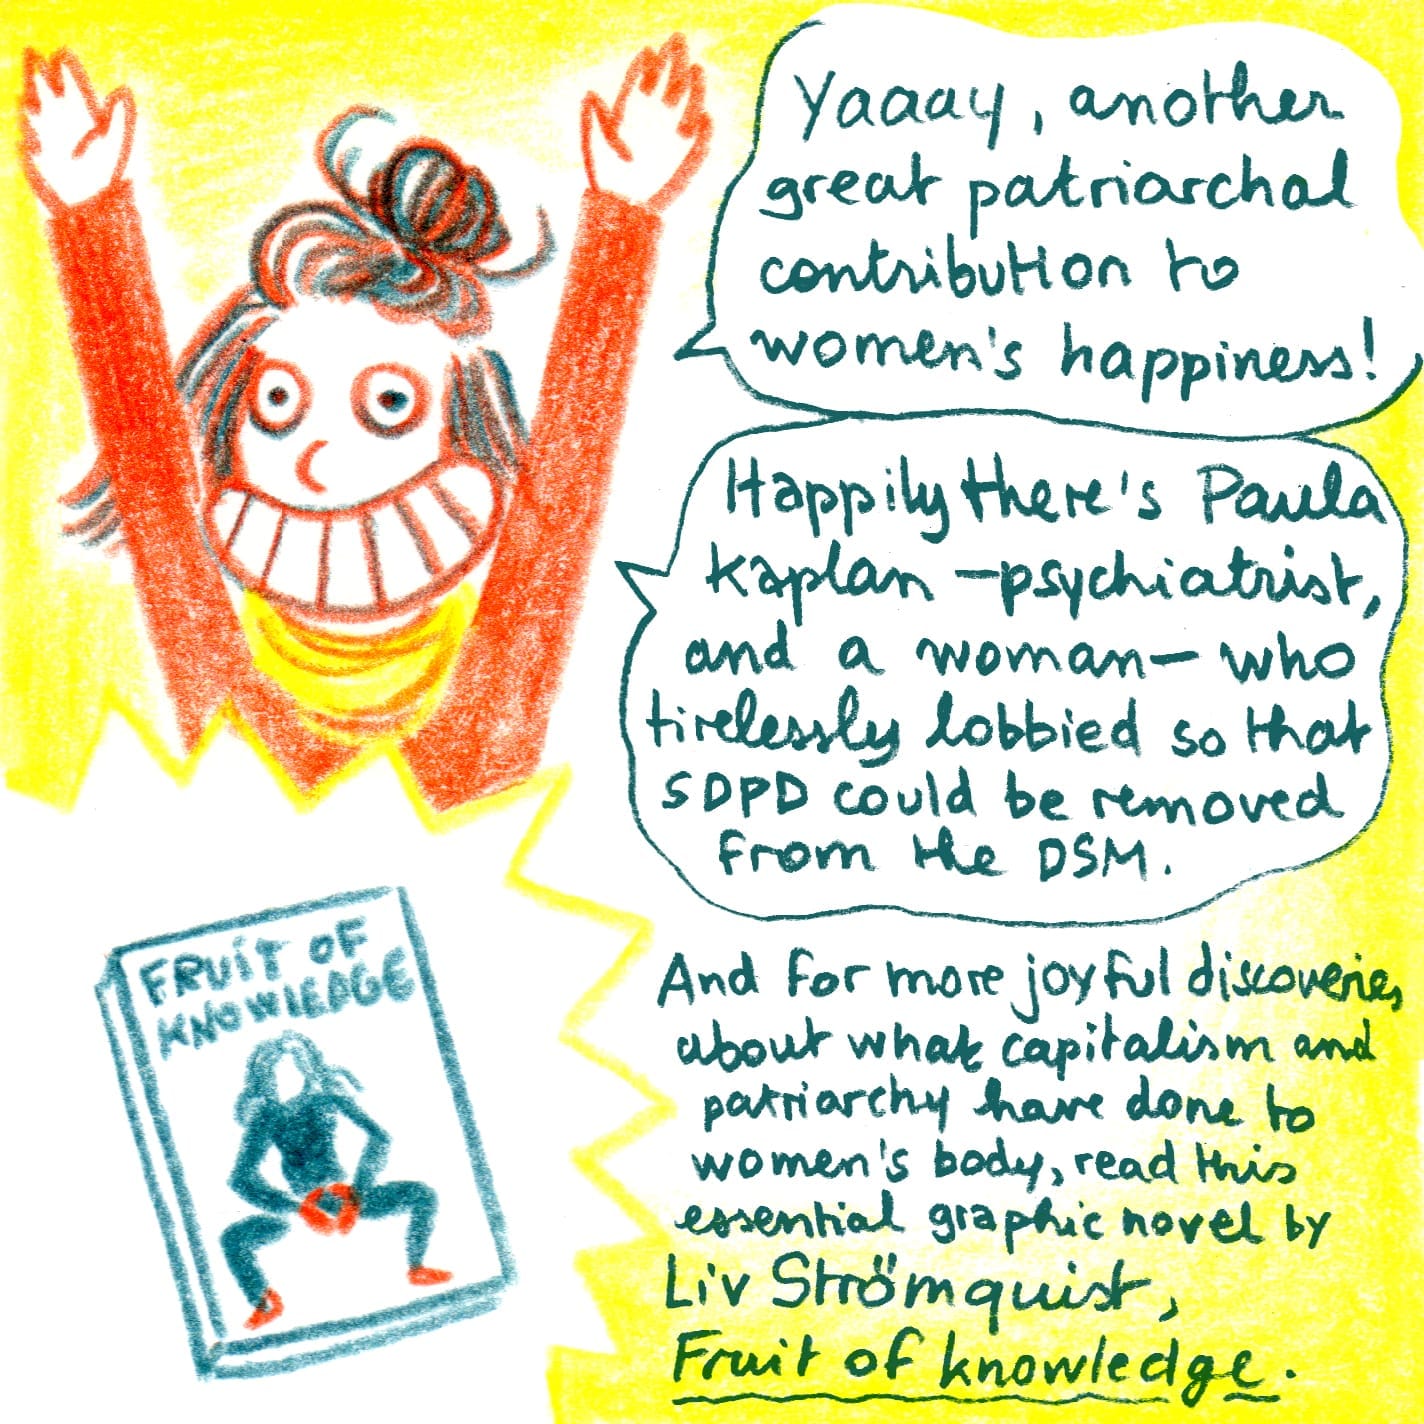 Yaaay, another
great patriarchal
contribution to
women's happiness!
Happily there's Paula
Kaplan – psychiatrist,
and a woman – who
tirelessly lobbied so that
SDPD could be removed
from the DSM.
And for more joyful discoveries
about what capitalism and
patriarchy have done to
women's body, read this
essential graphic novel by
Liv Strömquist,
Fruit of knowledge.
FRUIT OF
KNOWLEDGE